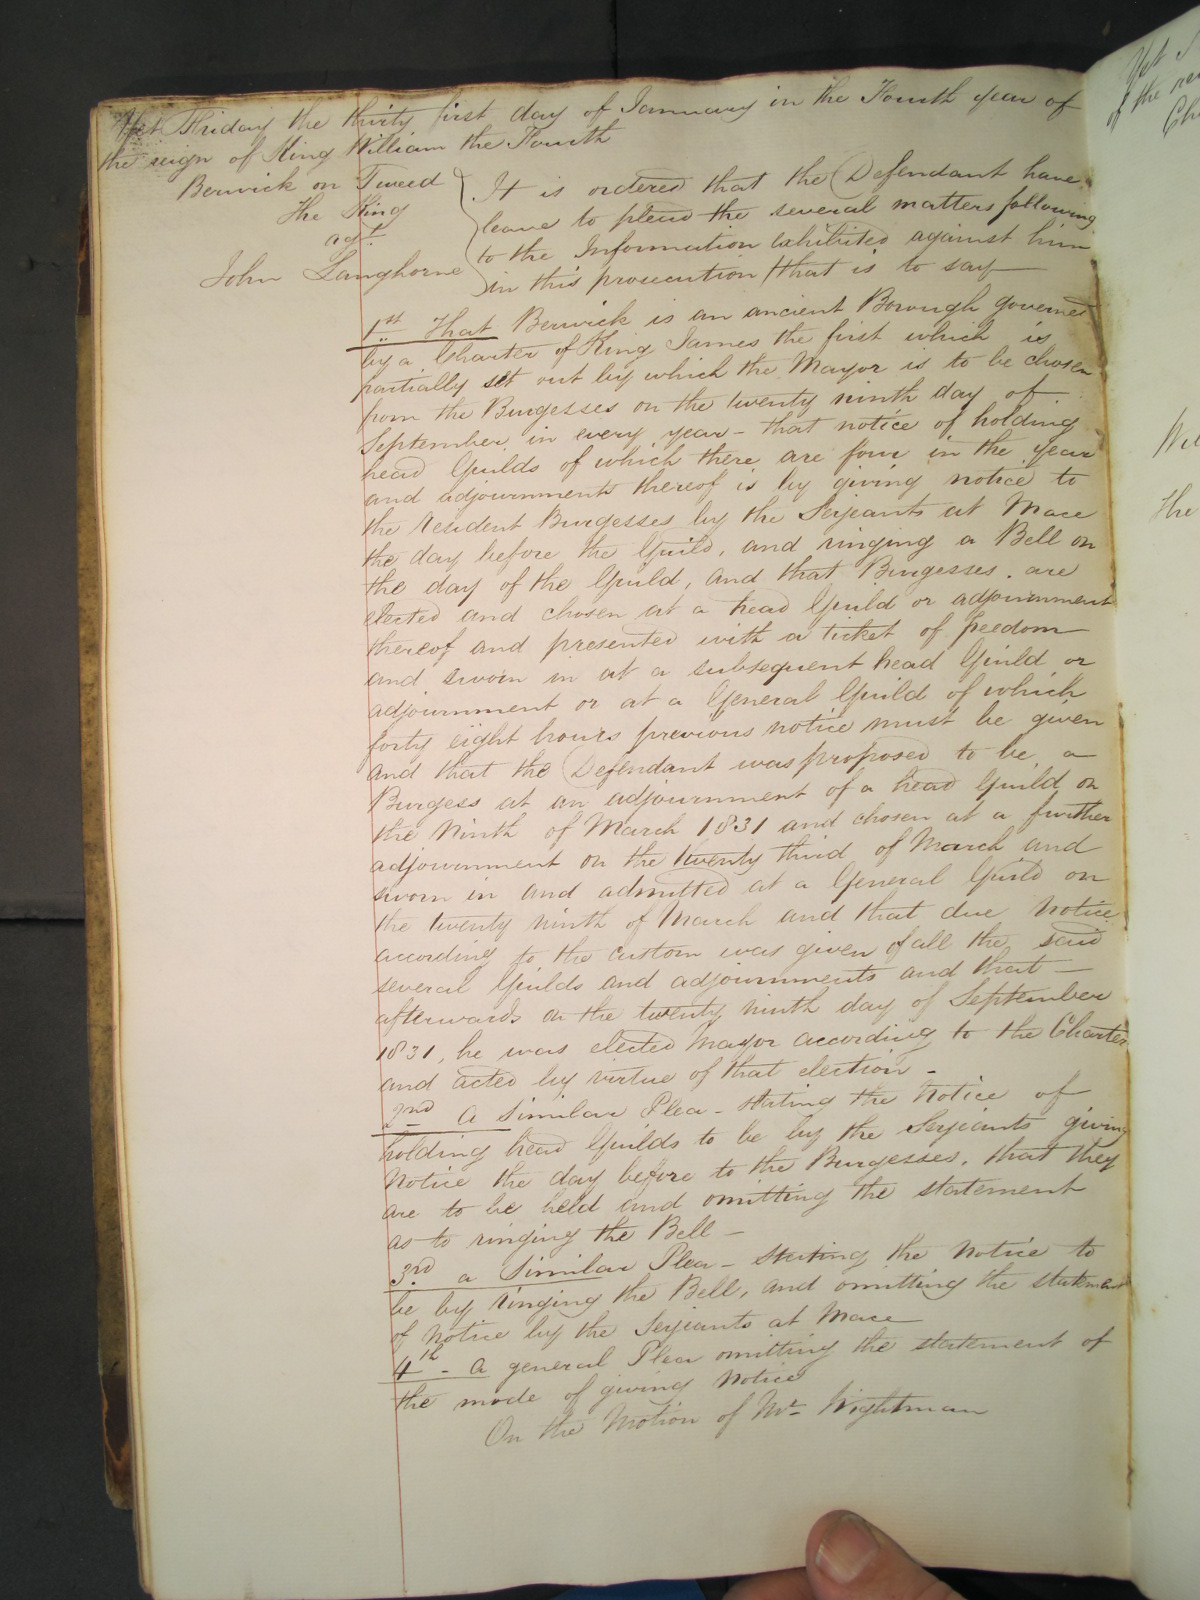 Yet Friday the thirty first day of January in the Fourth year of
the reign of King William the Fourth
Berwick on Tweed
The King
agt.
John Langhorne
It is ordered that the Defendant have
leave to plead the several matters following
to the Information exhibited against him
in this prosecution / that is to say
1st. That Berwick is an ancient Borough governed
by a Charter of King James the first which is
partially set out by which the Mayor is to be chosen
from the Burgesses on the twenty ninth day of
September in every year - that notice of holding
head Guilds of which there are four in the year
and adjournments thereof is by giving notice to
the resident Burgesses by the Serjeants at Mace
the day before the Guild, and ringing a Bell on
the day of the Guild, and that Burgesses are
elected and chosen at a head Guild or adjournment
thereof and presented with a ticket of freedom
and sworn in at a subsequent head Guild or
adjournment or at a General Guild of which
forty eight hours previous notice must be given
and that the Defendant was proposed to be a
Burgess at an adjournment of a head Guild on
the Ninth of March 1831 and chosen at a further
adjournment on the twenty third of March and
sworn in and admitted at a General Guild on
the twenty ninth of March and that due notice
according to the custom was given of all the said
several Guilds and adjournments and that
afterwards on the twenty ninth day of September
1831, he was elected Mayor according to the Charter
and acted by virtue of that election -
2nd a similar Plea - stating the notice of
holding head Guilds to be by the Serjeants giving
Notice the day before to the Burgesses, that they
are to be held and omitting the statement
as to ringing the Bell -
3rd a Similar Plea - stating the notice to
be by ringing the Bell, and omitting the statement
of notice by the Serjeants at Mace
4th - a general Plea omitting the statement of
the mode of giving notice
On the Motion of Mr. Wightman
Yet
of the
The